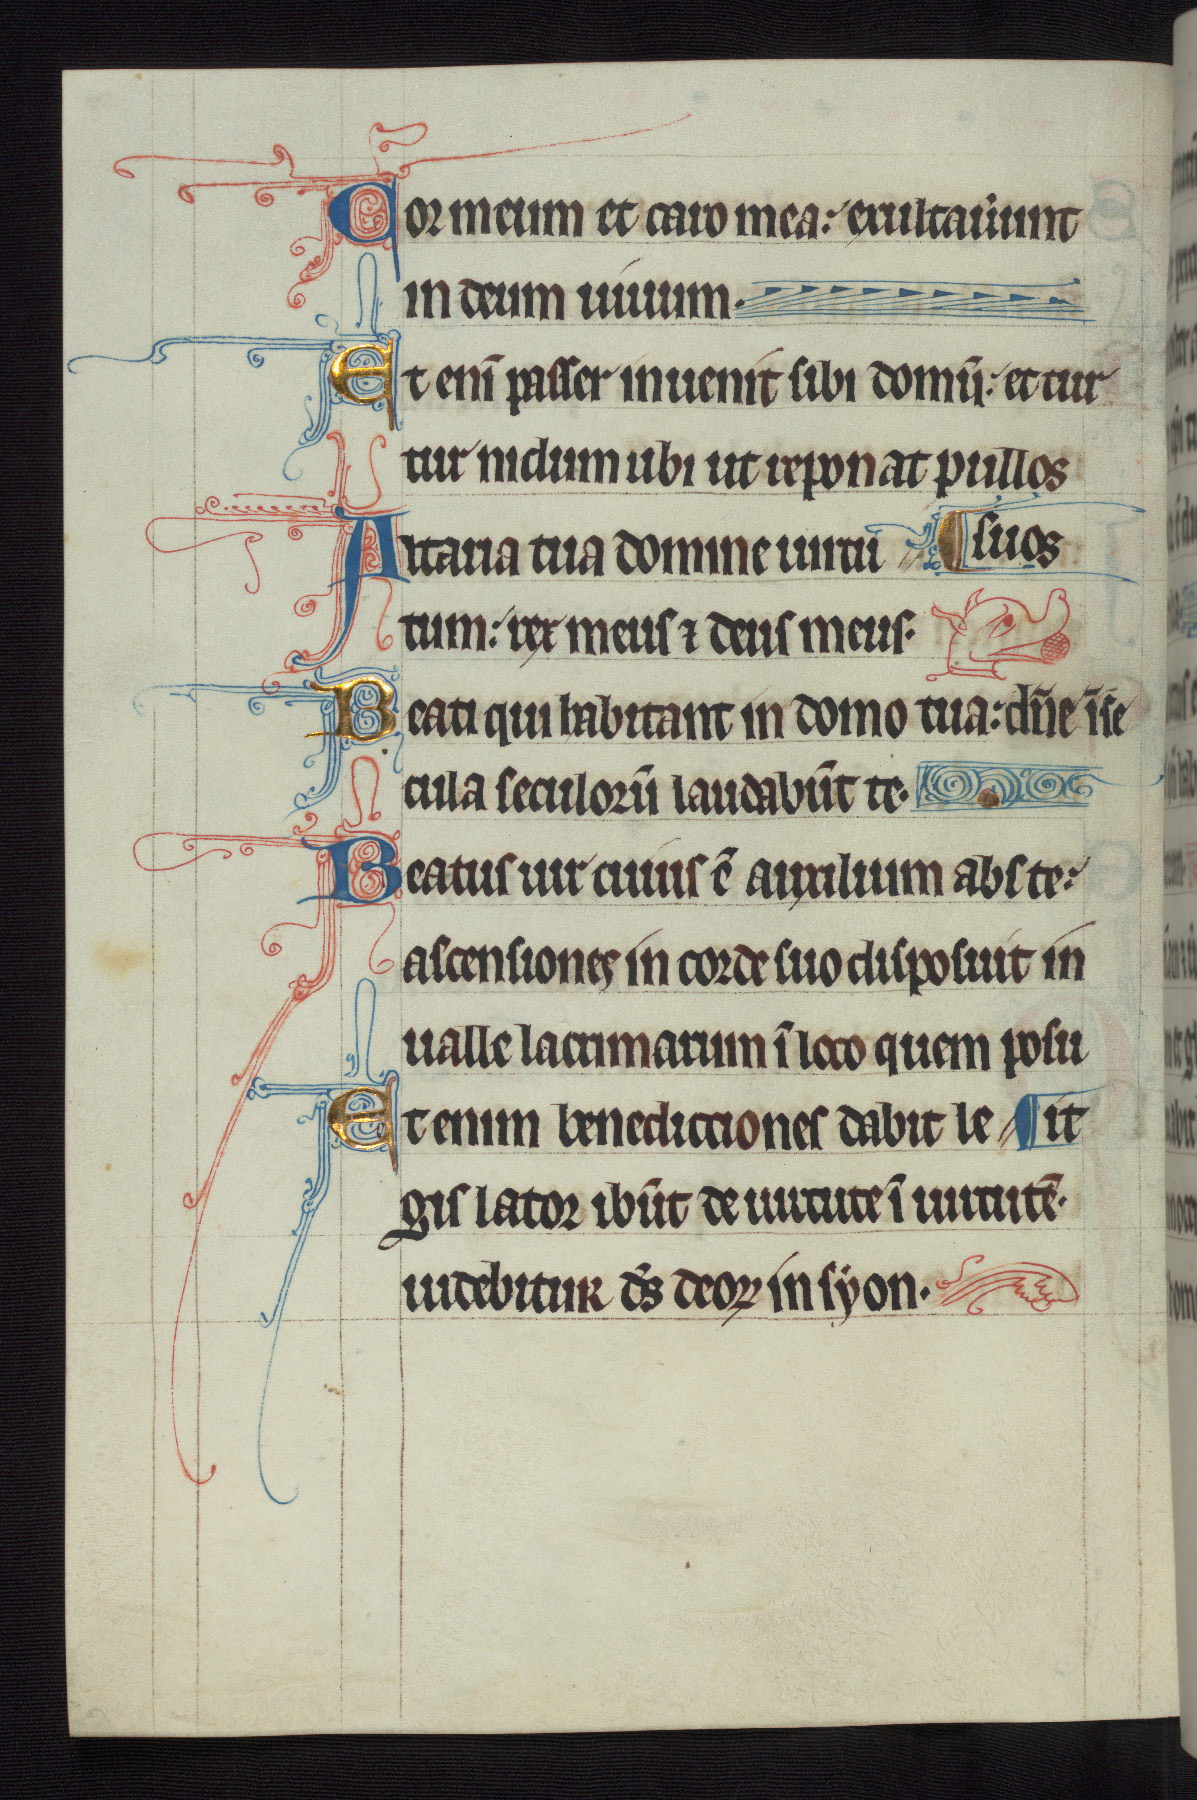 Cor meum et caro mea: exultauerunt
in deum uiuum.
Et enī passer inuenit sibi domū: et tur
tur nidum ubi ut reponat pullos
Altaria tua domine uirtu ¶ suos
tum: rex meus ⁊ deus meus.
Beati qui habitant in domo tua: dn̄e ī se
cula seculorū laudabūt te.
Beatus uir cuius ē auxilium abs te:
ascensiones in corde suo disposuit in
ualle lacrimarum ī loco quem posu
Et enim benedictiones dabit le ¶ it
gis lator ibūt de uirtute ī uirtutē.
uidebitur ds̄ deoꝝ in syon.